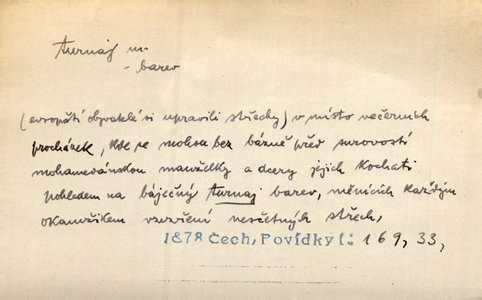 turnaj m.
- barev
(evropští obyvatelé si upravili střechy) v místo večerních
procházek, kde se mohou bez bázně před surovostí
mohamedánskou manželky a dcery jejich kochati
pohledem na báječný turnaj barev, měnících každým
okamžikem vzezření nesčetných střech,
1878 Čech, Povídky I: 169, 33,